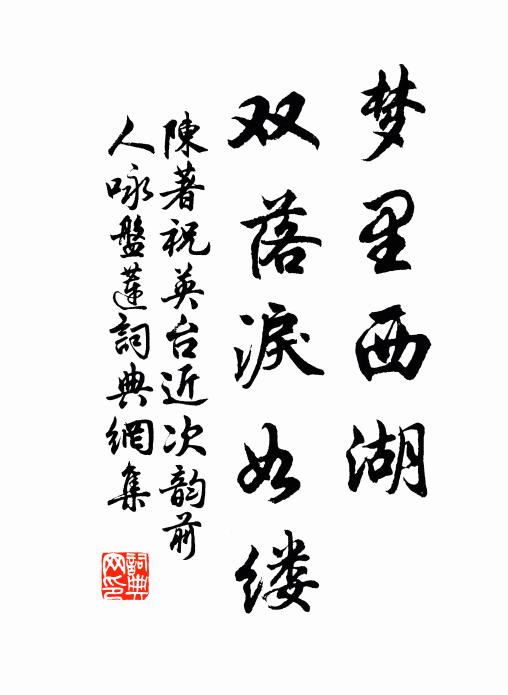 梦里西湖
双落淚如缕
陳著祝英台近次韵前
人咏盤蓮詞典網集
詞典
网印